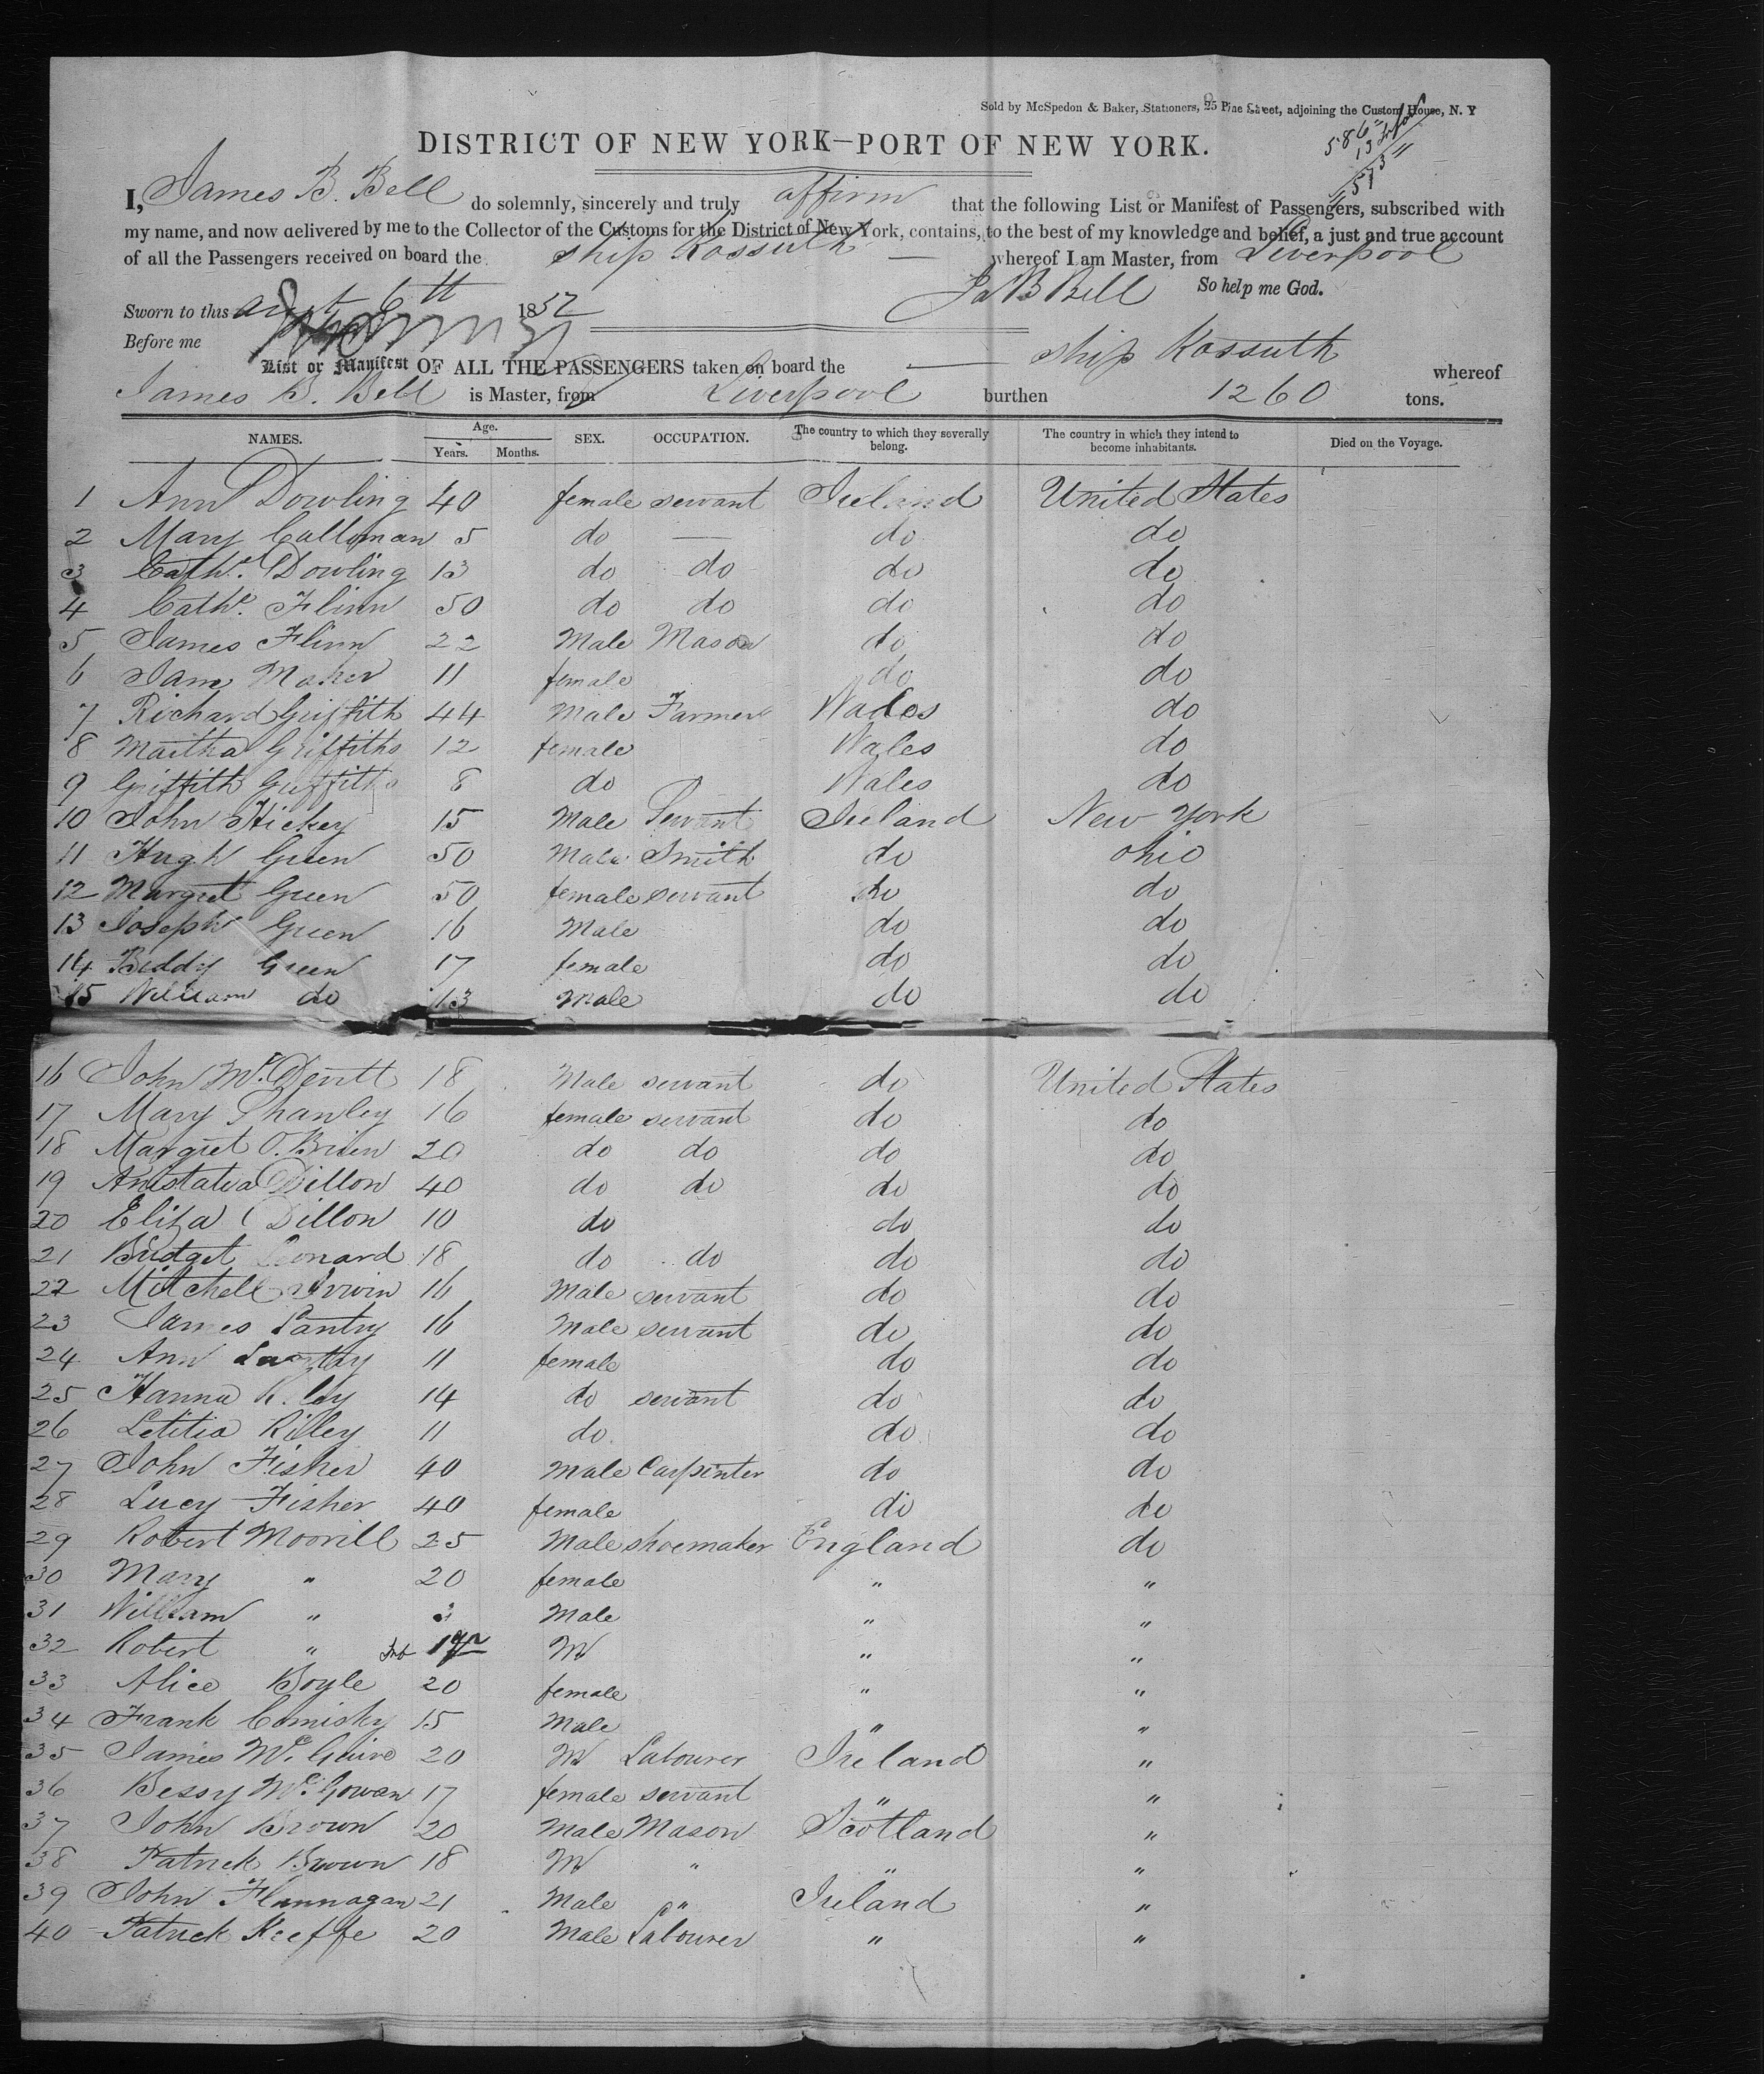 Sold by McSpedon & Baker, Stationers, 25 Pine Street, adjoining the Custom House, N. Y
586
13
573
DISTRICT OF NEW YORK—PORT OF NEW YORK.
I, James B. Bell do solemnly, sincerely and truly affirm that the following List or Manifest of Passengers, subscribed with
my name, and now delivered by me to the Collector of the Customs for the District of New York, contains, to the best of my knowledge and belief, a just and true account
of all the Passengers received on board the ship Kossuth — whereof I am Master, from Liverpool
Ja B Bell So help me God.
Sworn to this Augt 6th 1852
Before me
List or Manifest OF ALL THE PASSENGERS taken on board the — ship Kossuth whereof
James B. Bell is Master, from Liverpool burthen 1260 tons.
NAMES. Age. Years. Months. SEX. OCCUPATION. The country to which they severally belong. The country in which they intend to become inhabitants. Died on the Voyage.
1 Ann Dowling 40 female servant Ireland United States
2 Mary Calloman 5 do — do do
3 Cathe. Dowling 13 do do do do
4 Cathe. Flinn 50 do do do do
5 James Flinn 22 Male Mason do do
6 Jane Maher 11 female do do
7 Richard Griffith 44 Male Farmer Wales do
8 Martha Griffiths 12 female Wales do
9 Griffith Griffiths 8 do Wales do
10 John Hickey 15 Male Servant Ireland New York
11 Hugh Green 50 Male Smith do ohio
12 Margret Green 50 female servant do do
13 Joseph Green 16 Male do do
14 Biddy Green 17 female do do
15 William do 13 Male do do
16 John Mc.Devitt 18 Male servant do United States
17 Mary Shanley 16 female servant do do
18 Margret O.Brien 20 do do do do
19 Anistatia Dillon 40 do do do do
20 Eliza Dillon 10 do do do
21 Bridget Leonard 18 do do do do
22 Mitchell Irwin 16 Male servant do do
23 James Lantry 16 Male servant do do
24 Ann Lantry 11 female do do
25 Hanna Riley 14 do servant do do
26 Letitia Rilley 11 do do do
27 John Fisher 40 Male Carpinter do do
28 Lucy Fisher 40 female do do
29 Robert Moorill 25 Male shoemaker England do
30 Mary " 20 female " "
31 William " 3 Male " "
32 Robert " Inf M " "
33 Alice Boyle 20 female " "
34 Frank Comisky 15 Male " "
35 James Mc.Guire 20 M Labourer Ireland "
36 Bessy Mc.Gowan 17 female servant " "
37 John Brown 20 Male Mason Scotland "
38 Patrick Brown 18 M " " "
39 John Flannagan 21 Male " Ireland "
40 Patrick Keeffe 20 Male Labourer " "